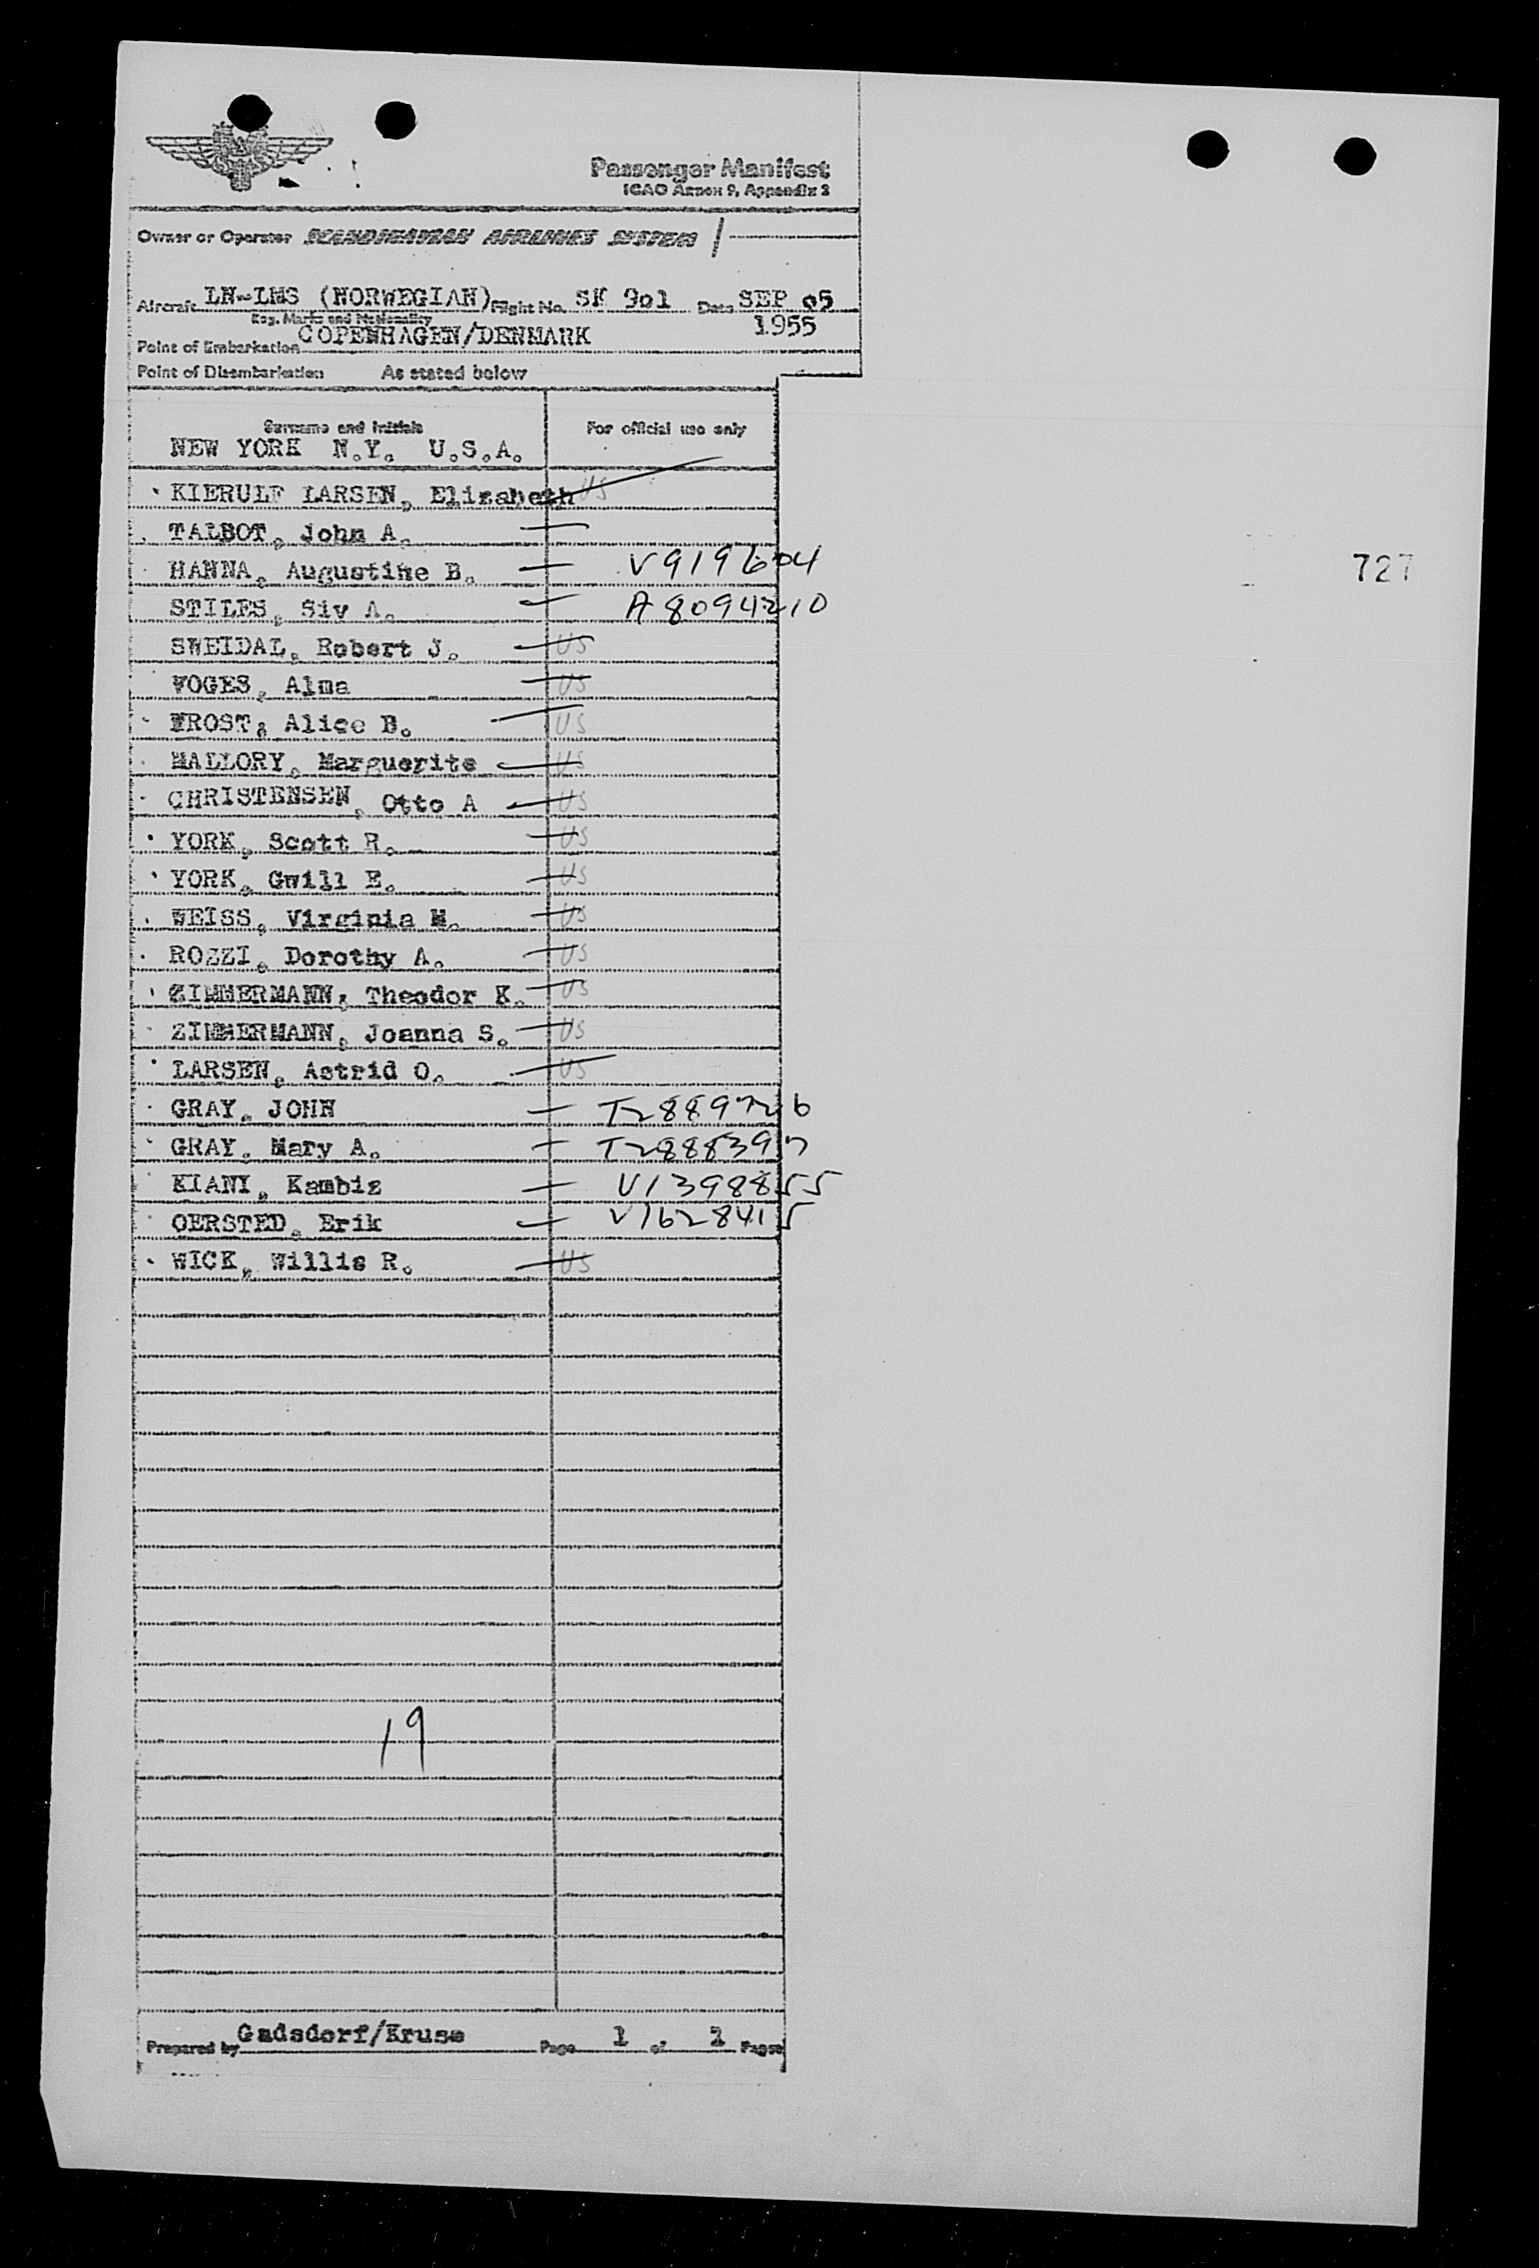 Passenger Manifest
ICAO Annex 9, Appendix 2
Owner or Operator SCANDINAVIAN AIRLINES SYSTEM
Aircraft LN-LMS (NORWEGIAN) Flight No. SK 901 Date SEP 05
Reg. Marks and Nationality 1955
Point of Embarkation COPENHAGEN/DENMARK
Point of Disembarkation As stated below
Surname and Initials For official use only
NEW YORK N.Y. U.S.A.
KIERULF LARSEN, Elisabeth US
TALBOT, John A.
HANNA, Augustine B. V919604
STILES, Siv A. A8094210
SWEIDAL, Robert J. US
VOGES, Alma US
FROST, Alice B. US
MALLORY, Marguerite US
CHRISTENSEN, Otto A US
YORK, Scott R. US
YORK, Gwill E. US
WEISS, Virginia M. US
ROZZI, Dorothy A. US
ZIMMERMANN, Theodor K. US
ZIMMERMANN, Joanna S. US
LARSEN, Astrid O. US
GRAY, JOHN T2889726
GRAY, Mary A. T2888397
KIANI, Kambiz V1398855
OERSTED, Erik V1628415
WICK, Willis R. US
19
Prepared by Gadsdorf/Kruse Page 1 of 1 Pages
727